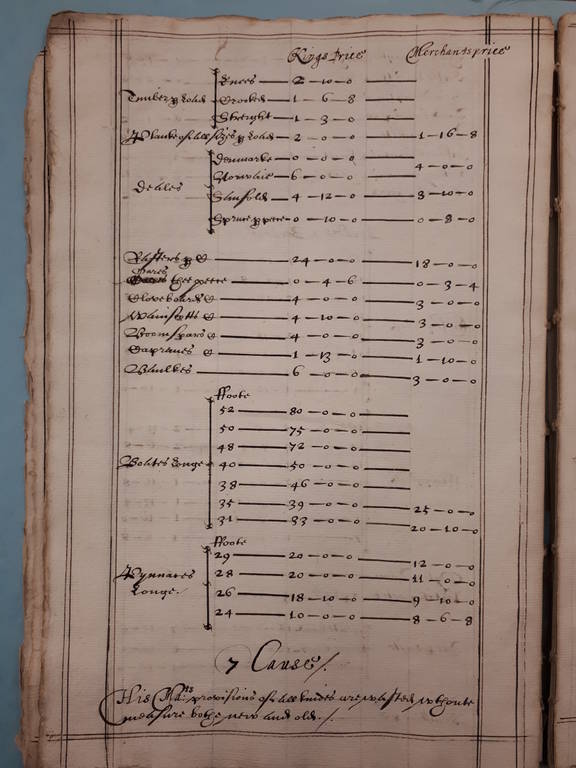 Kings Price Merchants price
Knees 2 - 10 - 0
Timber p lode Crooked 1 - 6 - 8
Streight 1 - 3 - 0
Planke of all sizes p lode 2 - 0 - 0 1 - 16 - 8
Denmarke 0 - 0 - 0
Norwaie 6 - 0 - 0 4 - 0 - 0
Deales
4 - 12 - 0 8 - 10 - 0
Spruce p peece 0 - 10 - 0 0 - 8 - 0
Rafters p C 24 - 0 - 0 18 - 0 - 0
Oares
the peece 0 - 4 - 6 0 - 3 - 4
Cloveboards C 4 - 0 - 0 3 - 0 - 0
Wainscotts C 4 - 10 - 0 3 - 0 - 0
Boomspars C 4 - 0 - 0 3 - 0 - 0
Capraves C 1 - 13 - 0 1 - 10 - 0
Baulkes 6 - 0 - 0 3 - 0 - 0
ffoote
52 80 - 0 - 0
50 75 - 0 - 0
48 72 - 0 - 0
Bolites longe 40 50 - 0 - 0
38 46 - 0 - 0
35 39 - 0 - 0 25 - 0 - 0
31 33 - 0 - 0 20 - 10 - 0
ffoote
29 20 - 0 - 0 12 - 0 - 0
28 20 - 0 - 0 11 - 0 - 0
Pynnares
Longe 26 18 - 10 - 0 9 - 10 - 0
24 10 - 0 - 0 8 - 6 - 8
7 Cause /.
His Maᵗˢ provisions of all kindes are wasted wthoute
measure bothe new and old. /.